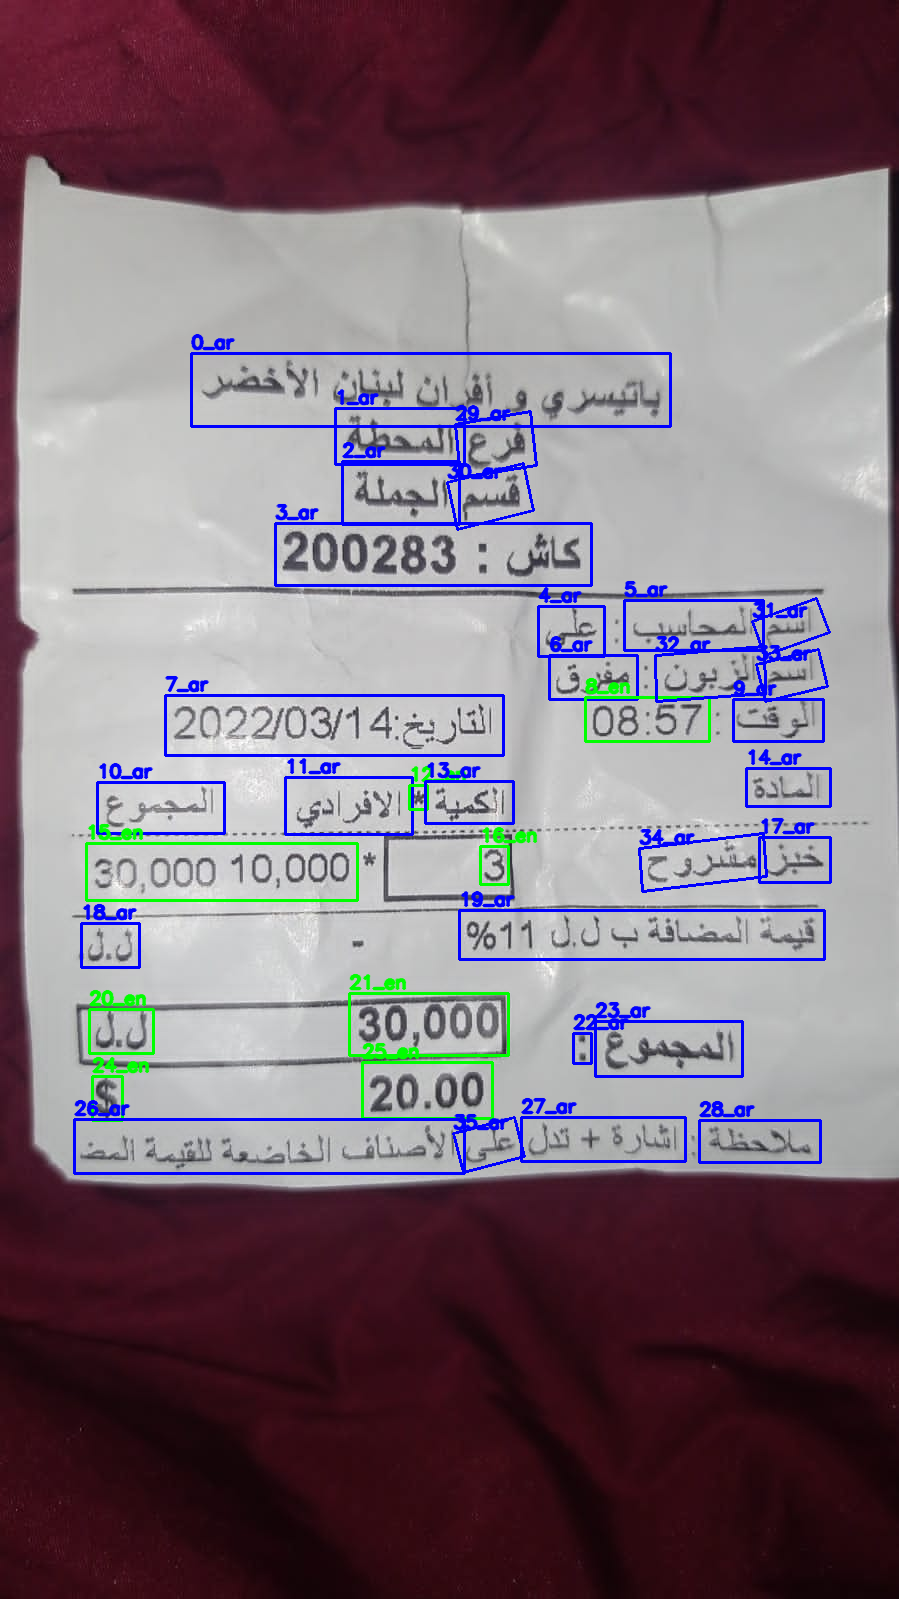 باتيسري و أفران لبنان الأخضر
فرع المحطة
قسم الجملة
كاش : 200283
اسم المحاسب : علي
اسم الزبون : مفرق
الوقت : 08:57 التاريخ:2022/03/14
المادة الكمية * الافرادي المجموع
خبز مشروح 3 * 10,000 30,000
قيمة المضافة ب ل.ل 11% - ل.ل.
المجموع : 30,000 ل.ل
20.00 $
ملاحظة : اشارة + تدل على الأصناف الخاضعة للقيمة المض
0_ar
1_ar
29_ar
2_ar
30_ar
3_ar
4_ar
5_ar
31_ar
6_ar
32_ar
33_ar
7_ar
8_en
9_ar
10_ar
11_ar
13_ar
14_ar
15_en
16_en
34_ar
17_ar
18_ar
19_ar
20_en
21_en
22_ar
23_ar
24_en
25_en
26_ar
35_ar
27_ar
28_ar